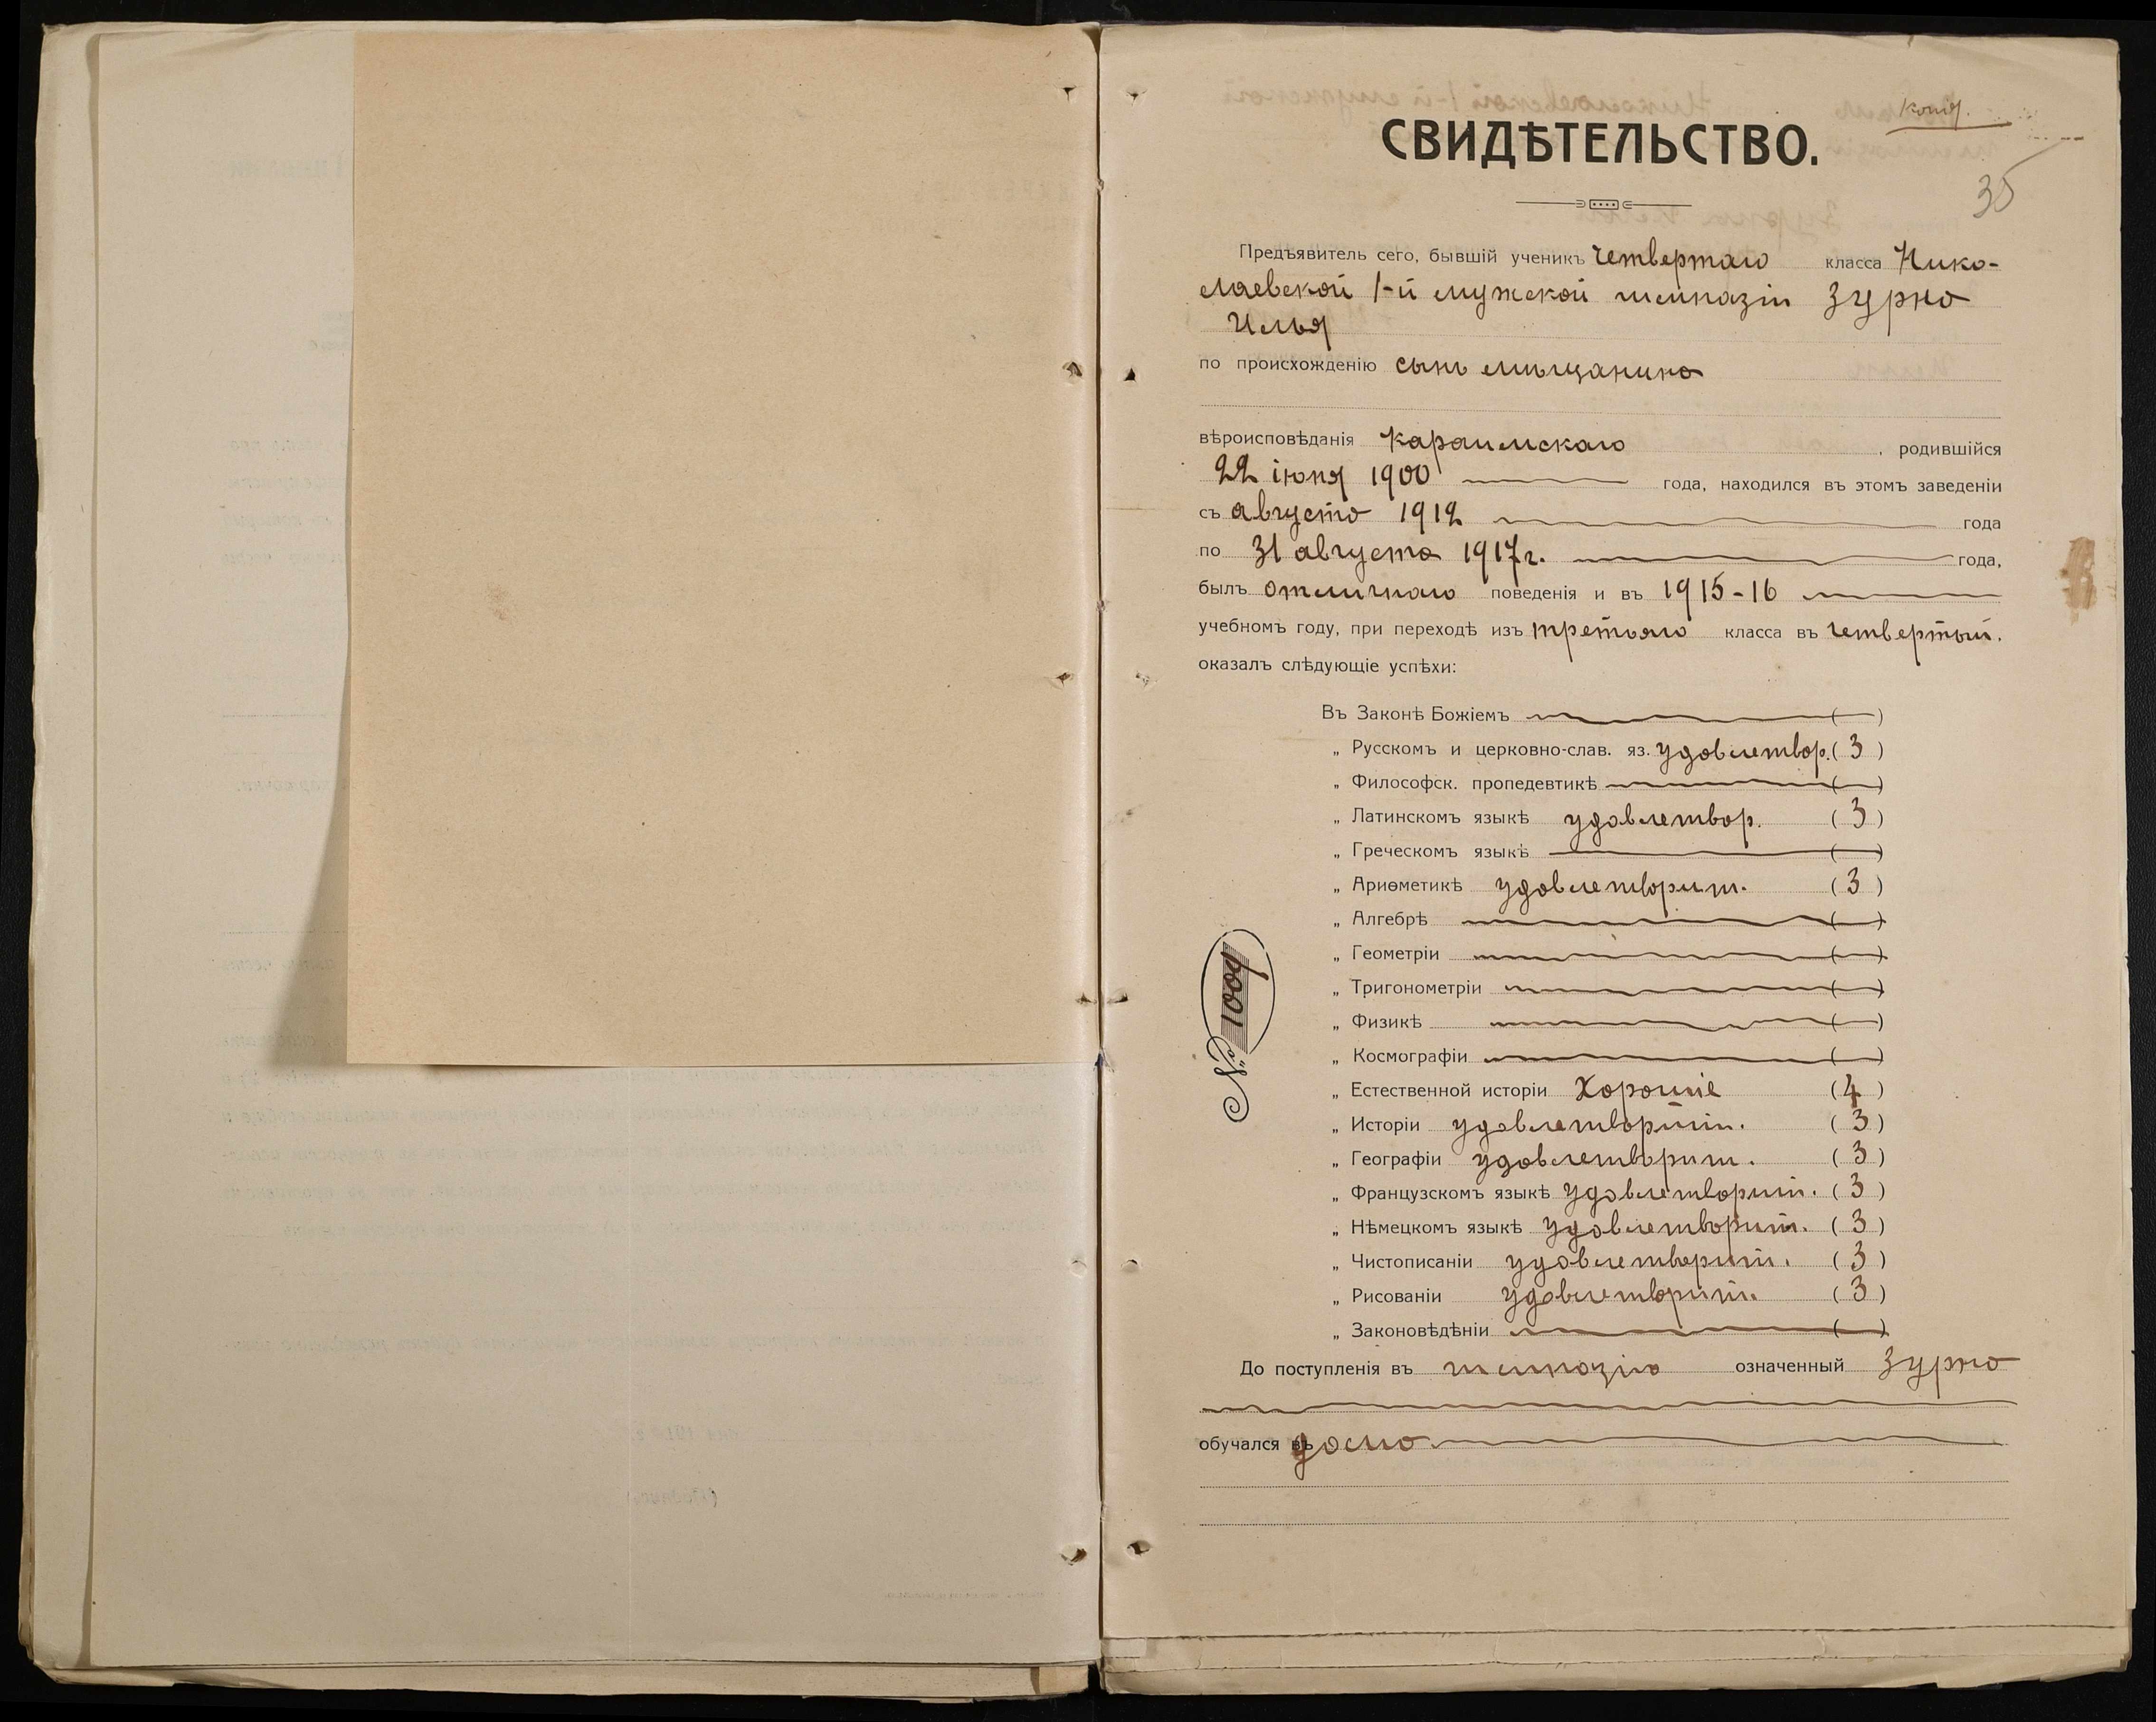 копія.
СВИДѢТЕЛЬСТВО.
35
Предъявитель сего, бывшій ученикъ четвертаго класса Нико-
лаевской 1-й мужской гимназіи Зурна
Илья
по происхожденію сынъ мѣщанина
вѣроисповѣданія караимскаго, родившійся
22 іюня 1900 года, находился въ этомъ заведеніи
съ августа 1912 года
по 31 августа 1917 г. года,
былъ отличнаго поведенія и въ 1915-16
учебномъ году, при переходѣ изъ третьяго класса въ четвертый.
оказалъ слѣдующіе успѣхи:
Въ Законѣ Божіемъ ( — )
„ Русскомъ и церковно-слав. яз. удовлетвор. ( 3 )
„ Философск. пропедевтикѣ ( — )
„ Латинскомъ языкѣ удовлетвор. ( 3 )
„ Греческомъ языкѣ ( — )
„ Ариѳметикѣ удовлетворит. ( 3 )
„ Алгебрѣ ( — )
„ Геометріи ( — )
„ Тригонометріи ( — )
„ Физикѣ ( — )
„ Космографіи ( — )
„ Естественной исторіи хорошіе ( 4 )
„ Исторіи удовлетворит. ( 3 )
„ Географіи удовлетворит. ( 3 )
„ Французскомъ языкѣ удовлетворит. ( 3 )
„ Нѣмецкомъ языкѣ удовлетворит. ( 3 )
„ Чистописаніи удовлетворит. ( 3 )
„ Рисованіи удовлетворит. ( 3 )
„ Законовѣдѣніи ( — )
№ 1009
До поступленія въ гимназію означенный Зурна
обучался въ дома